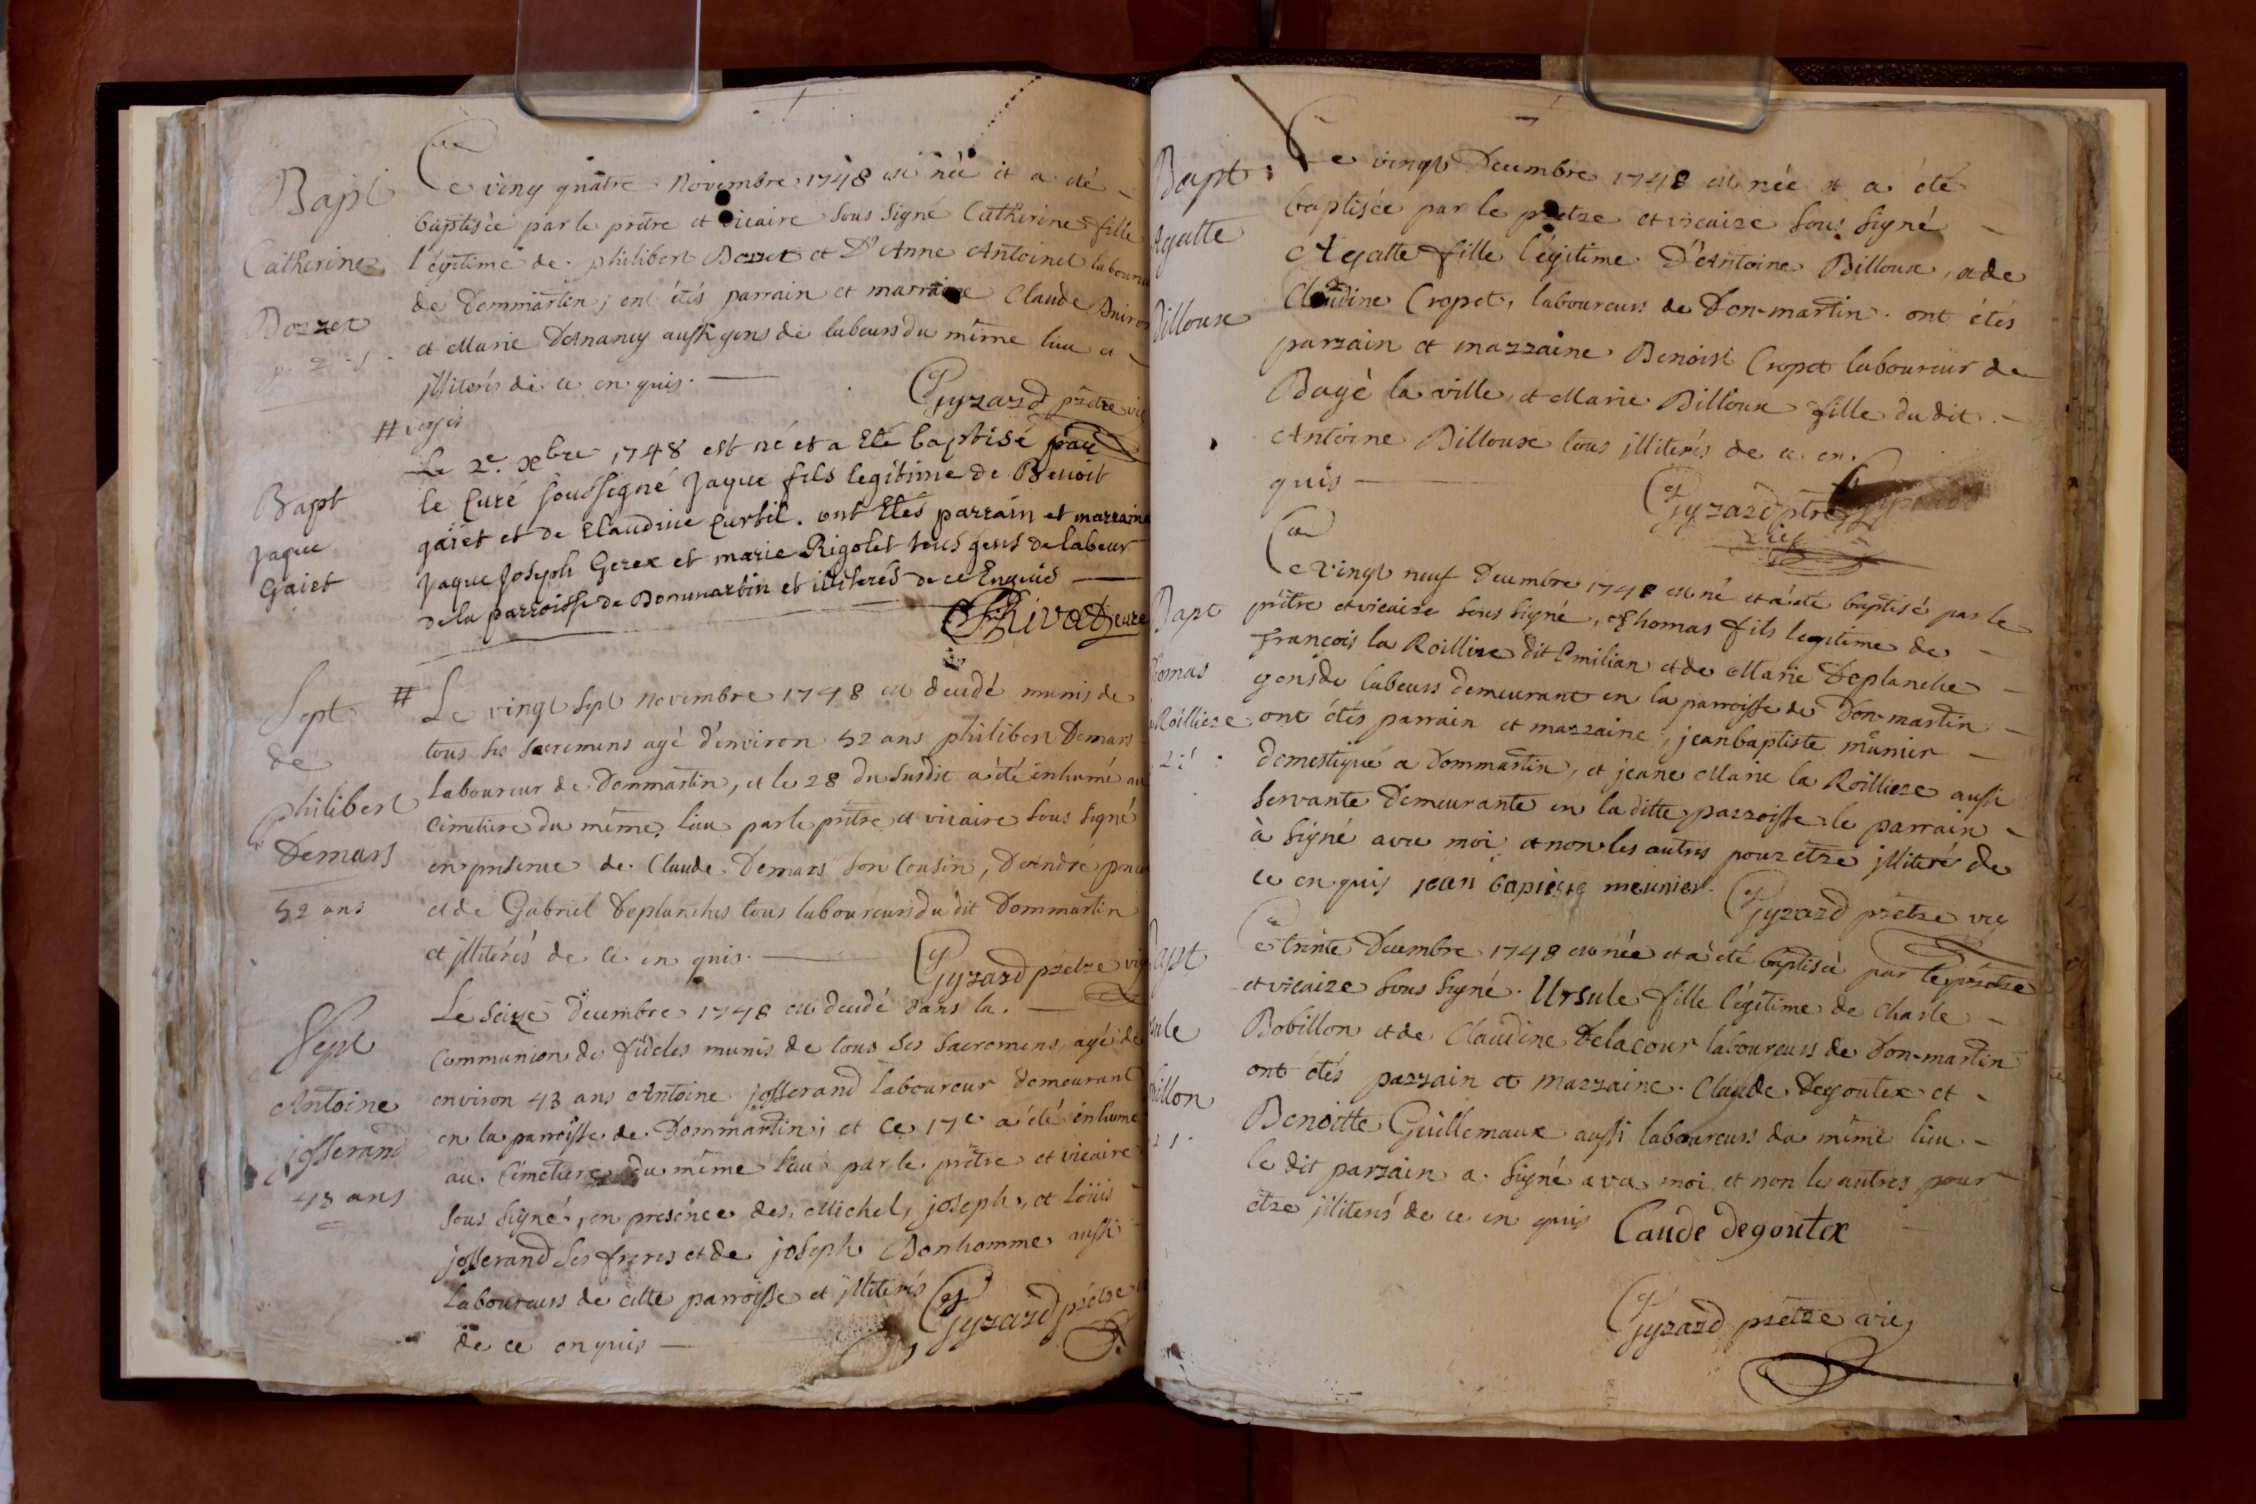 Bapt
Catherine
Bozzet
Ce ving quatre novembre 1748 est née et a été
baptisée par le prêtre et vicaire sous signé Catherine fille
légitime de philibert Bozet et D'Anne Antoinet
de Dommartin, ont étés parrain et marraine Claude
et Marie Desnancy aussi gens de labeurs du même lieu et
jlliterés de ce en quis.
Gyrard prêtre vic
# voyés
Bapt
Jaque
Gaiet
Le 2e. xbre 1748 est né et a Eté baptisé par
le Curé soussigné Jaque fils legitime de Benoit
gaiet et de Claudine Curtil. ont Etés parrain et marraine
Jaque Joseph Gerex et marie Rigolet tous gens de labeur
de la parroisse de Dommartin et illiterés de ce Enquis
Sept
de
philibert
Demars
52 ans
# Le vingt sept novembre 1748 est decedé munis de
tous ses sacremens agé d'environ 52 ans philibert Demars
laboureur de Dommartin, et le 28 du susdit a été inhumé au
cimetiere du même lieu par le prêtre et vicaire sous signé
en presence de Claude Demars son Cousin, D'andré
et de Gabriel Deplanches tous laboureurs du dit Dommartin
et jlliterés de ce en quis.
Gyrard prêtre vic
Sept
Antoine
josserand
43 ans
Le seize Decembre 1748 est decedé dans la
communion de fideles munis de tous ses sacremens, agé de
environ 43 ans Antoine josserand laboureur demeurant
en la parroisse de Dommartin, et ce 17e a été inhumé
au cimetiere du même lieu par le prêtre et vicaire
sous signé, en presence des Michel, joseph, et Loüis
josserand ses freres et de joseph Bonhomme aussi
Laboureurs de cette parroisse et jlliterés
de ce en quis
Gyrard prêtre
Bapt
Agatte
Billoux
Ce vingt Decembre 1748 est née et a été
baptisée par le prêtre et vicaire sous signé
Agatte fille légitime D'Antoine Billoux, et de
Claudine Cropet, laboureurs de Don-martin. ont étés
parrain et marraine Benoist Cropet laboureur de
Bagé la ville, et Marie Billoux fille du dit
Antoine Billoux tous jlliterés de ce en
quis
Gyrard ptre
vic
Bapt
homas
Roilliere
Ce vingt neuf Decembre 1748 est né et a été baptisé par le
prêtre et vicaire sous signé, Thomas fils legitime de
François la Roilliere dit Emilian et de Marie Deplanche
gens de labeurs demeurant en la parroisse de Don-martin
ont étés parrain et marraine, jean baptiste mûnier
domestique a Dommartin, et jeane Marie la Roilliere aussi
servante Demeurante en la ditte parroisse, le parrain
à signé avec moi et non les autres pour etre jlliteré de
ce en quis jean bapiste meunier
Gyrard prêtre vic
apt
sule
billon
Ce trente Decembre 1748 est née et a été baptisée par le prêtre
et vicaire sous signé. Ursule fille légitime de Charle
Bobillon et de Claudine Delacour laboureurs de Don-martin
ont étés parrain et marraine. Claude Degoutex et
Benoitte Guillemaux aussi laboureurs du même lieu
le dit parrain a signé avec moi, et non les autres pour
être jlliterés de ce en quis Caude degoutex
Gyrard prêtre vic